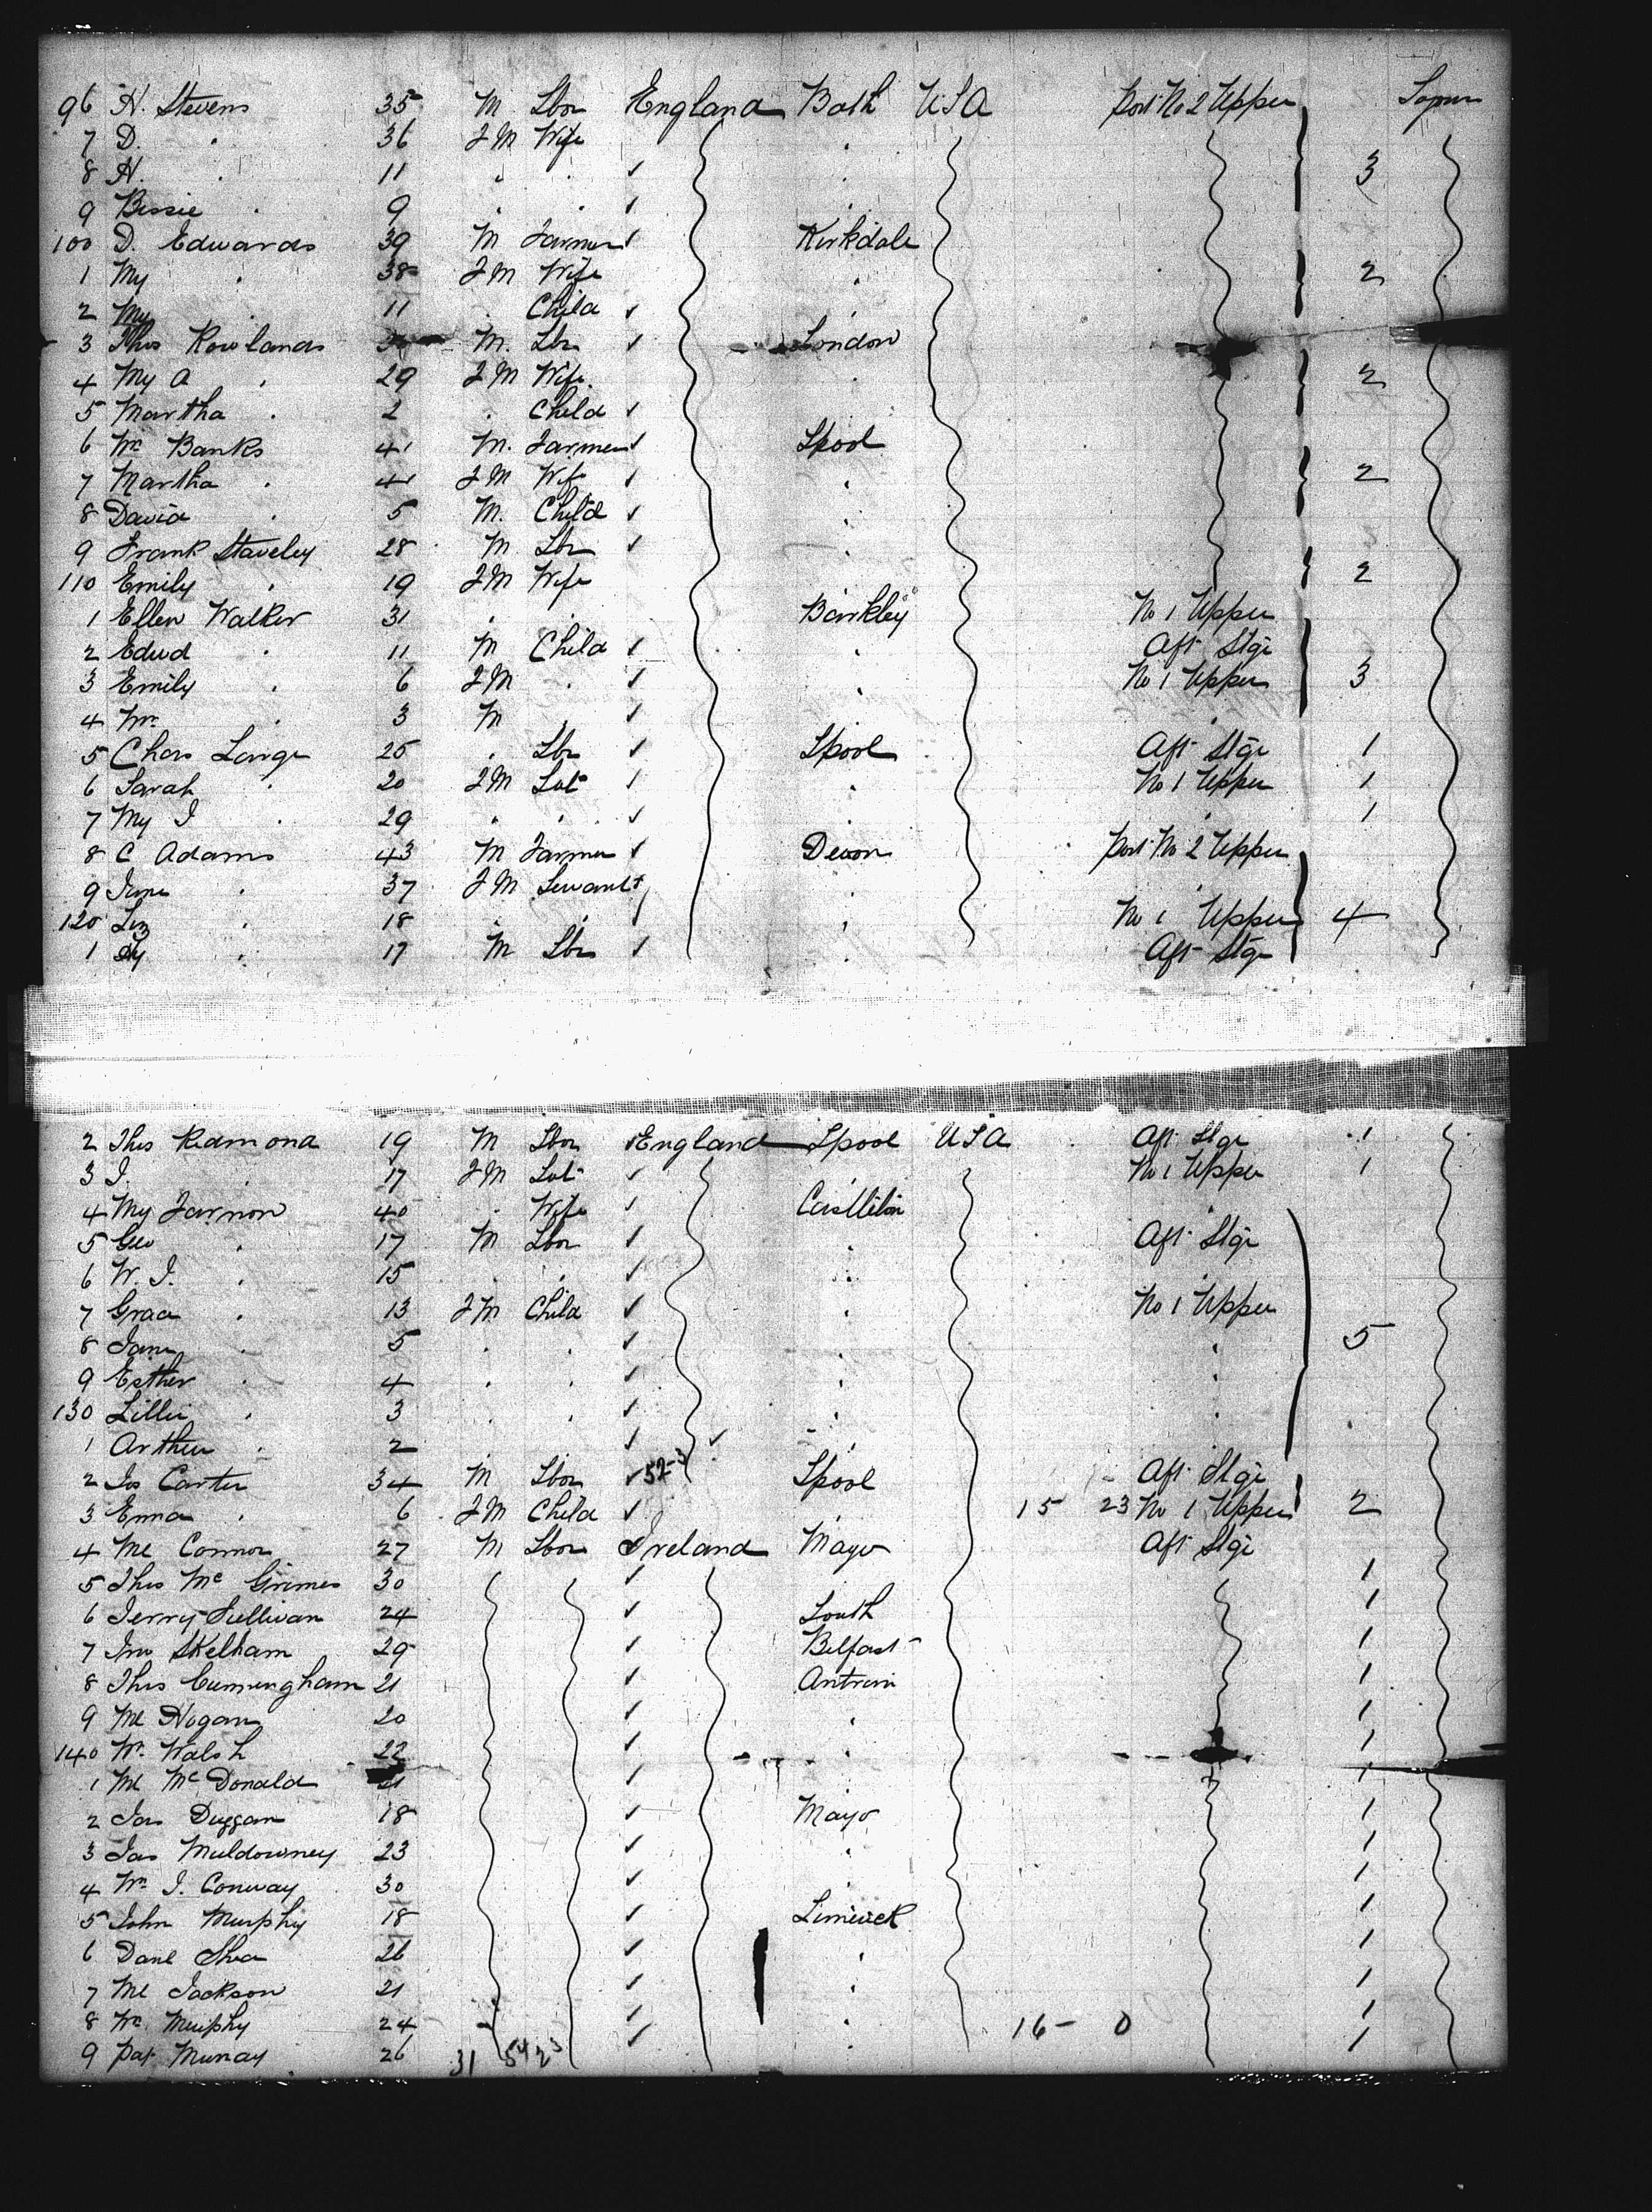 96 H. Stevens 35 M Lbr England Bath USA Port No 2 Upper
7 D. " 36 FM Wife "
8 H. " 11 " " " 3
9 Bessie " 9 " " "
100 D. Edwards 39 M Farmer Kirkdale
1 My " 38 FM Wife " 2
2 My " 11 " Child "
3 Thos Rowlands M. Lbr London
4 My A " 29 FM Wife " 2
5 Martha " 2 " Child
6 Wm Banks 41 M. Farmer Lpool
7 Martha " 41 FM Wife " 2
8 David " 5 M. Child "
9 Frank Staveley 28 M Lbr "
110 Emily " 19 FM Wife 2
1 Ellen Walker 31 " " Barkley No 1 Upper
2 Edwd " 11 M Child " Aft Stge
3 Emily " 6 FM " " No 1 Upper 3
4 Wm " 3 M " "
5 Chas Lange 25 " Lbr Lpool Aft Stge 1
6 Sarah " 20 FM " No 1 Upper 1
7 My J " 29 " " " " 1
8 C Adams 43 M Farmer Devon Port No 2 Upper
9 Jane " 37 FM Servant "
120 Liz " 18 " " " No 1 Upper 4
1 Hy " 17 M Lbr " Aft Stge
2 Thos Redmond 19 M Lbr England Lpool USA Aft Stge 1
3 J. " 17 FM No 1 Upper 1
4 My Farnon 40 " Wife "
5 Geo " 17 M Lbr " Aft Stge
6 W. J. " 15 " " " "
7 Grace " 13 FM Child " No 1 Upper
8 Jane " 5 " " " " 5
9 Esther " 4 " " " "
130 Lillie " 3 " " " "
1 Arthur " 2 " "
2 Jos Carter 34 M Lbr 52-3 Lpool Aft Stge
3 Emma " 6 FM Child " 15 23 No 1 Upper 2
4 Ml Connor 27 M Lbr Ireland Mayo Aft Stge
5 Thos Mc Grimes 30 1
6 Jerry Sullivan 24 Louth 1
7 Jno Skelham 29 Belfast 1
8 Thos Cunningham 21 Antrim 1
9 Ml Hogan 20 " 1
140 Wm Walsh 22 " 1
1 Ml McDonald 21 1
2 Jas Duggan 18 Mayo 1
3 Jas Muldowney 23 " 1
4 Wm J. Conway 30 1
5 John Murphy 18 Limerick 1
6 Danl Shea 26 " 1
7 Ml Jackson 21 " 1
8 Wm Murphy 24 " 16 - 0 1
9 Pat Murray 26 31 " 1